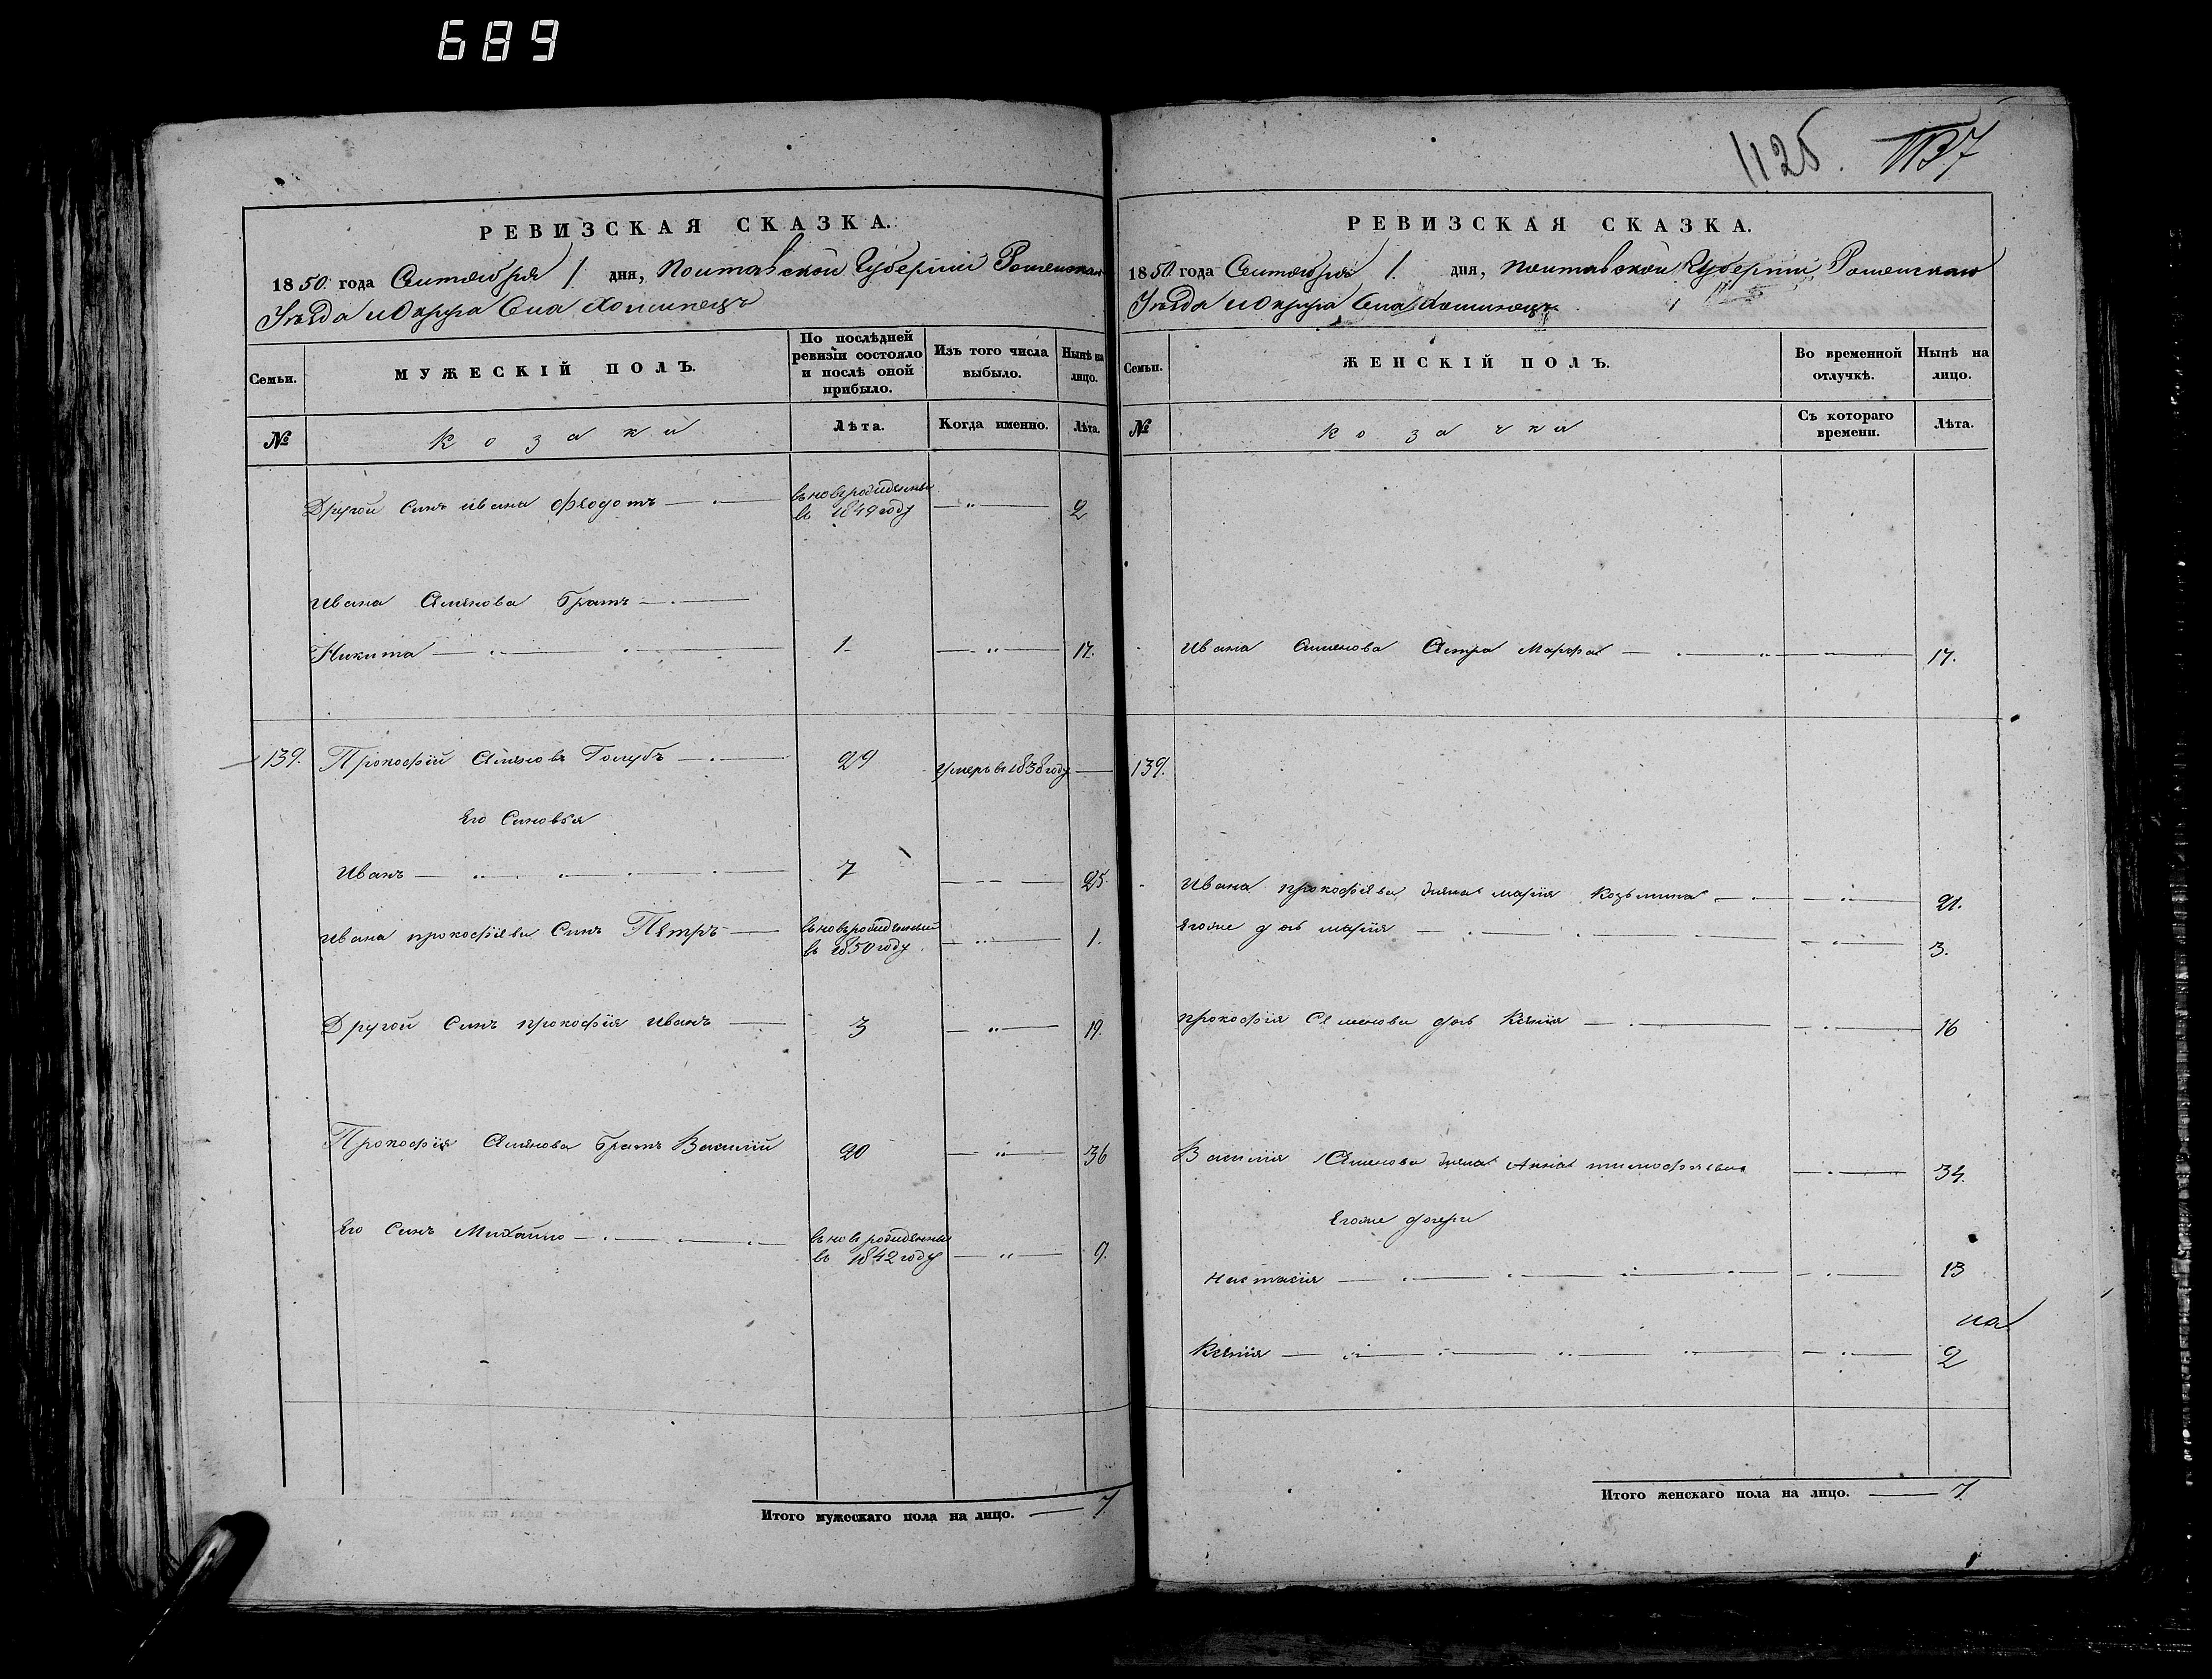 689
1125. 1137
РЕВИЗСКАЯ СКАЗКА.
1850 года Сентября 1 дня, Полтавской Губернии Роменскаго
Уѣзда и Округа Села
Семьи.
МУЖЕСКІЙ ПОЛЪ.
По послѣдней ревизіи состояло и послѣ оной прибыло.
Изъ того числа выбыло.
Нынѣ на лицо.
№
Козаки
Лѣта.
Когда именно.
Лѣта.
Другой Синъ ивана Федотъ — вновьрожденный в 1849 году — " — 2
ивана Семенова Братъ —
Никита — 1 — " — 17.
139. Прокофій Семеновъ Голубъ — 29 умеръ в 1838 году —
Его Синовья
Иванъ — 7 — 25.
ивана прокофiева Синъ Петръ — вновьрожденный в 1850 году — " — 1.
Другой Синъ прокофія иванъ — 3 — " — 19.
Прокофія Семенова братъ Василий 20 — " — 36
Его Синъ Михайло — вновьрожденный в 1842 году — " — 9.
Итого мужескаго пола на лицо. — 7
РЕВИЗСКАЯ СКАЗКА.
1850 года Сентября 1. дня, полтавской Губерніи Роменскаго
Уѣзда и Округа Села
Семьи.
ЖЕНСКІЙ ПОЛЪ.
Во временной отлучкѣ.
Нынѣ на лицо.
№
козачки
Съ котораго времени.
Лѣта.
Ивана Семенова Сестра Марфа — 17.
139.
Ивана прокофіева жена марія Козьмина — 21.
Егоже дочь марія — 3.
прокофія Семенова дочь Ксенія — 16
Василія Семенова жена Анна тимофеева — 34.
Егоже дочери
настасія — 13
на
Ксенія — 2
Итого женскаго пола на лицо. — 7.